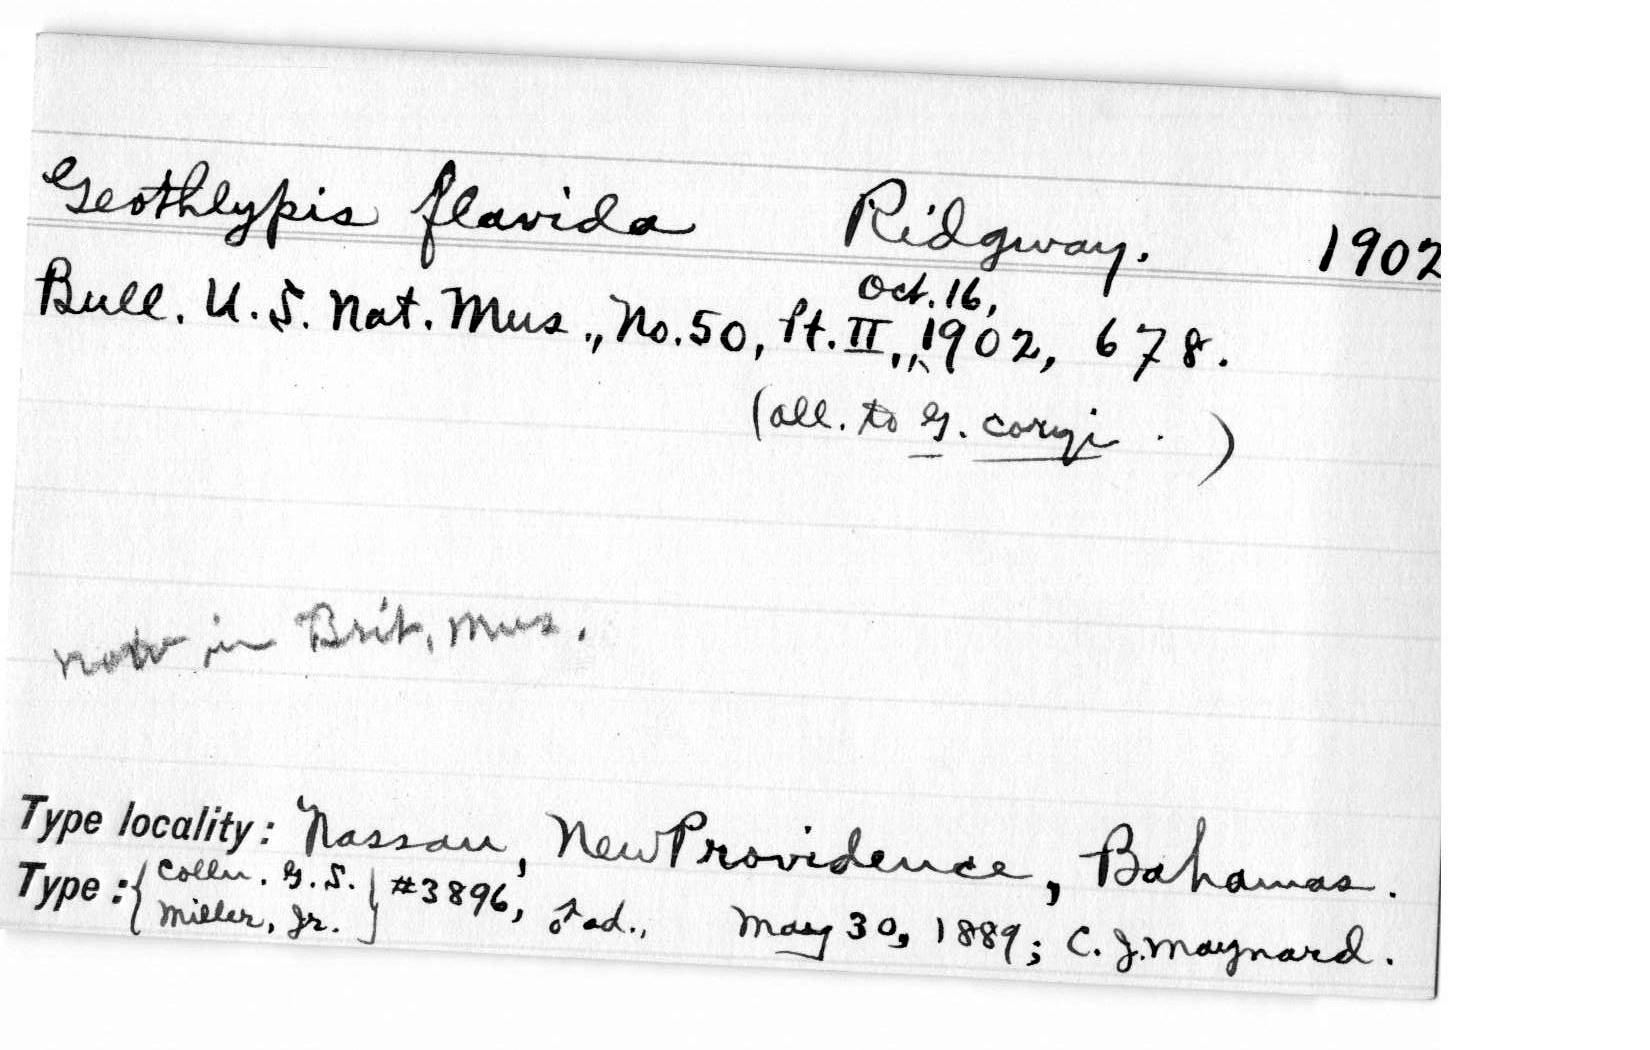 Geothlypis flavida Ridgway. 1902
Oct. 16,
Bull. U.S. Nat. Mus., No. 50, Pt. II, 1902, 678.
(all. to G. coryi . )
now in Brit, Mus.
Type locality: Nassau, New Providence, Bahamas.
Type: { Colln. G. S. Miller, Jr. } #3896, ♂ ad., May 30, 1889; C. J. Maynard.